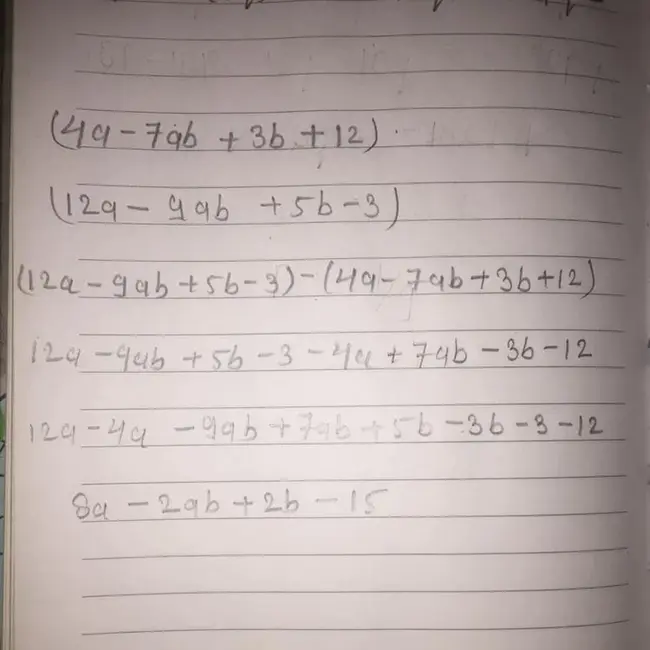 (4a - 7ab + 3b + 12)
(12a - 9ab + 5b - 3)
(12a - 9ab + 5b - 3) - (4a - 7ab + 3b + 12)
12a - 9ab + 5b - 3 - 4a + 7ab - 3b - 12
12a - 4a - 9ab + 7ab + 5b - 3b - 3 - 12
8a - 2ab + 2b - 15